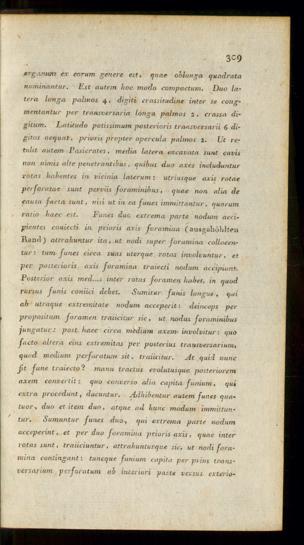 309
organum ex eorum genere est, quae oblonga quadrata
nominantur. Est autem hoc modo compactum. Duo la-
tera longa palmos 4, digiti crassitudine inter se coag-
mentantur per transversaria longa palmos 2, crassa di-
gitum. Latitudo potissimum posterioris transversarii 6 di-
gitos aequat, prioris propter opercula palmos 2. Ut re-
tulit autem Pasicrates, media latera excavata sunt cavis
non nimis alte penetrantibus, quibus duo axes includuntur
rotas habentes in vicinia laterum: utriusque axis rotae
perforatae sunt perviis foraminibus, quae non alia de
causa facta sunt, nisi ut in ea funes immittantur, quorum
ratio haec est. Funes duo extrema parte nodum acci-
pientes coniecti in prioris axis foramina (ausgehöhlten
Rand) attrahuntur ita, ut nodi super foramina collocen-
tur: tum funes circa suas uterque rotas involvuntur, et
per posterioris axis foramina traiecti nodum accipiunt.
Posterior axis inter rotas foramen habet, in quod
rursus funis coniici debet. Sumitur funis longus, qui
ab utraque extremitate nodum acceperit: deinceps per
propositum foramen traiicitur sic, ut nodus foraminibus
iungatur: post haec circa medium axem involvitur: quo
facto altera eius extremitas per posterius transversarium,
quod medium perforatum sit, traiicitur. At quid nunc
fit fune traiecto? manu tractus evolutusque posteriorem
axem convertit: quo converso alia capita funium, qui
extra procedunt, ducuntur. Adhibentur autem funes qua-
tuor, duo et item duo, atque ad hunc modum immittun-
tur. Sumuntur funes duo, qui extrema parte nodum
acceperint, et per duo foramina prioris axis, quae inter
rotas sunt, traiiciuntur, attrahunturque sic, ut nodi fora-
mina contingant: tuncque funium capita per prius trans-
versarium perforatum ab interiori parte versus exterio-